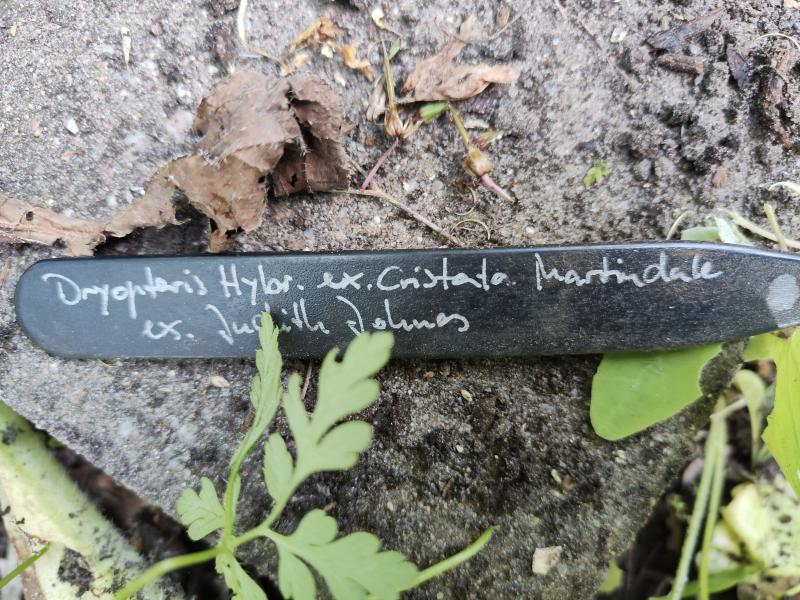 Dryopteris Hybr. ex. Cristata Martindale
ex. Judith Johnes